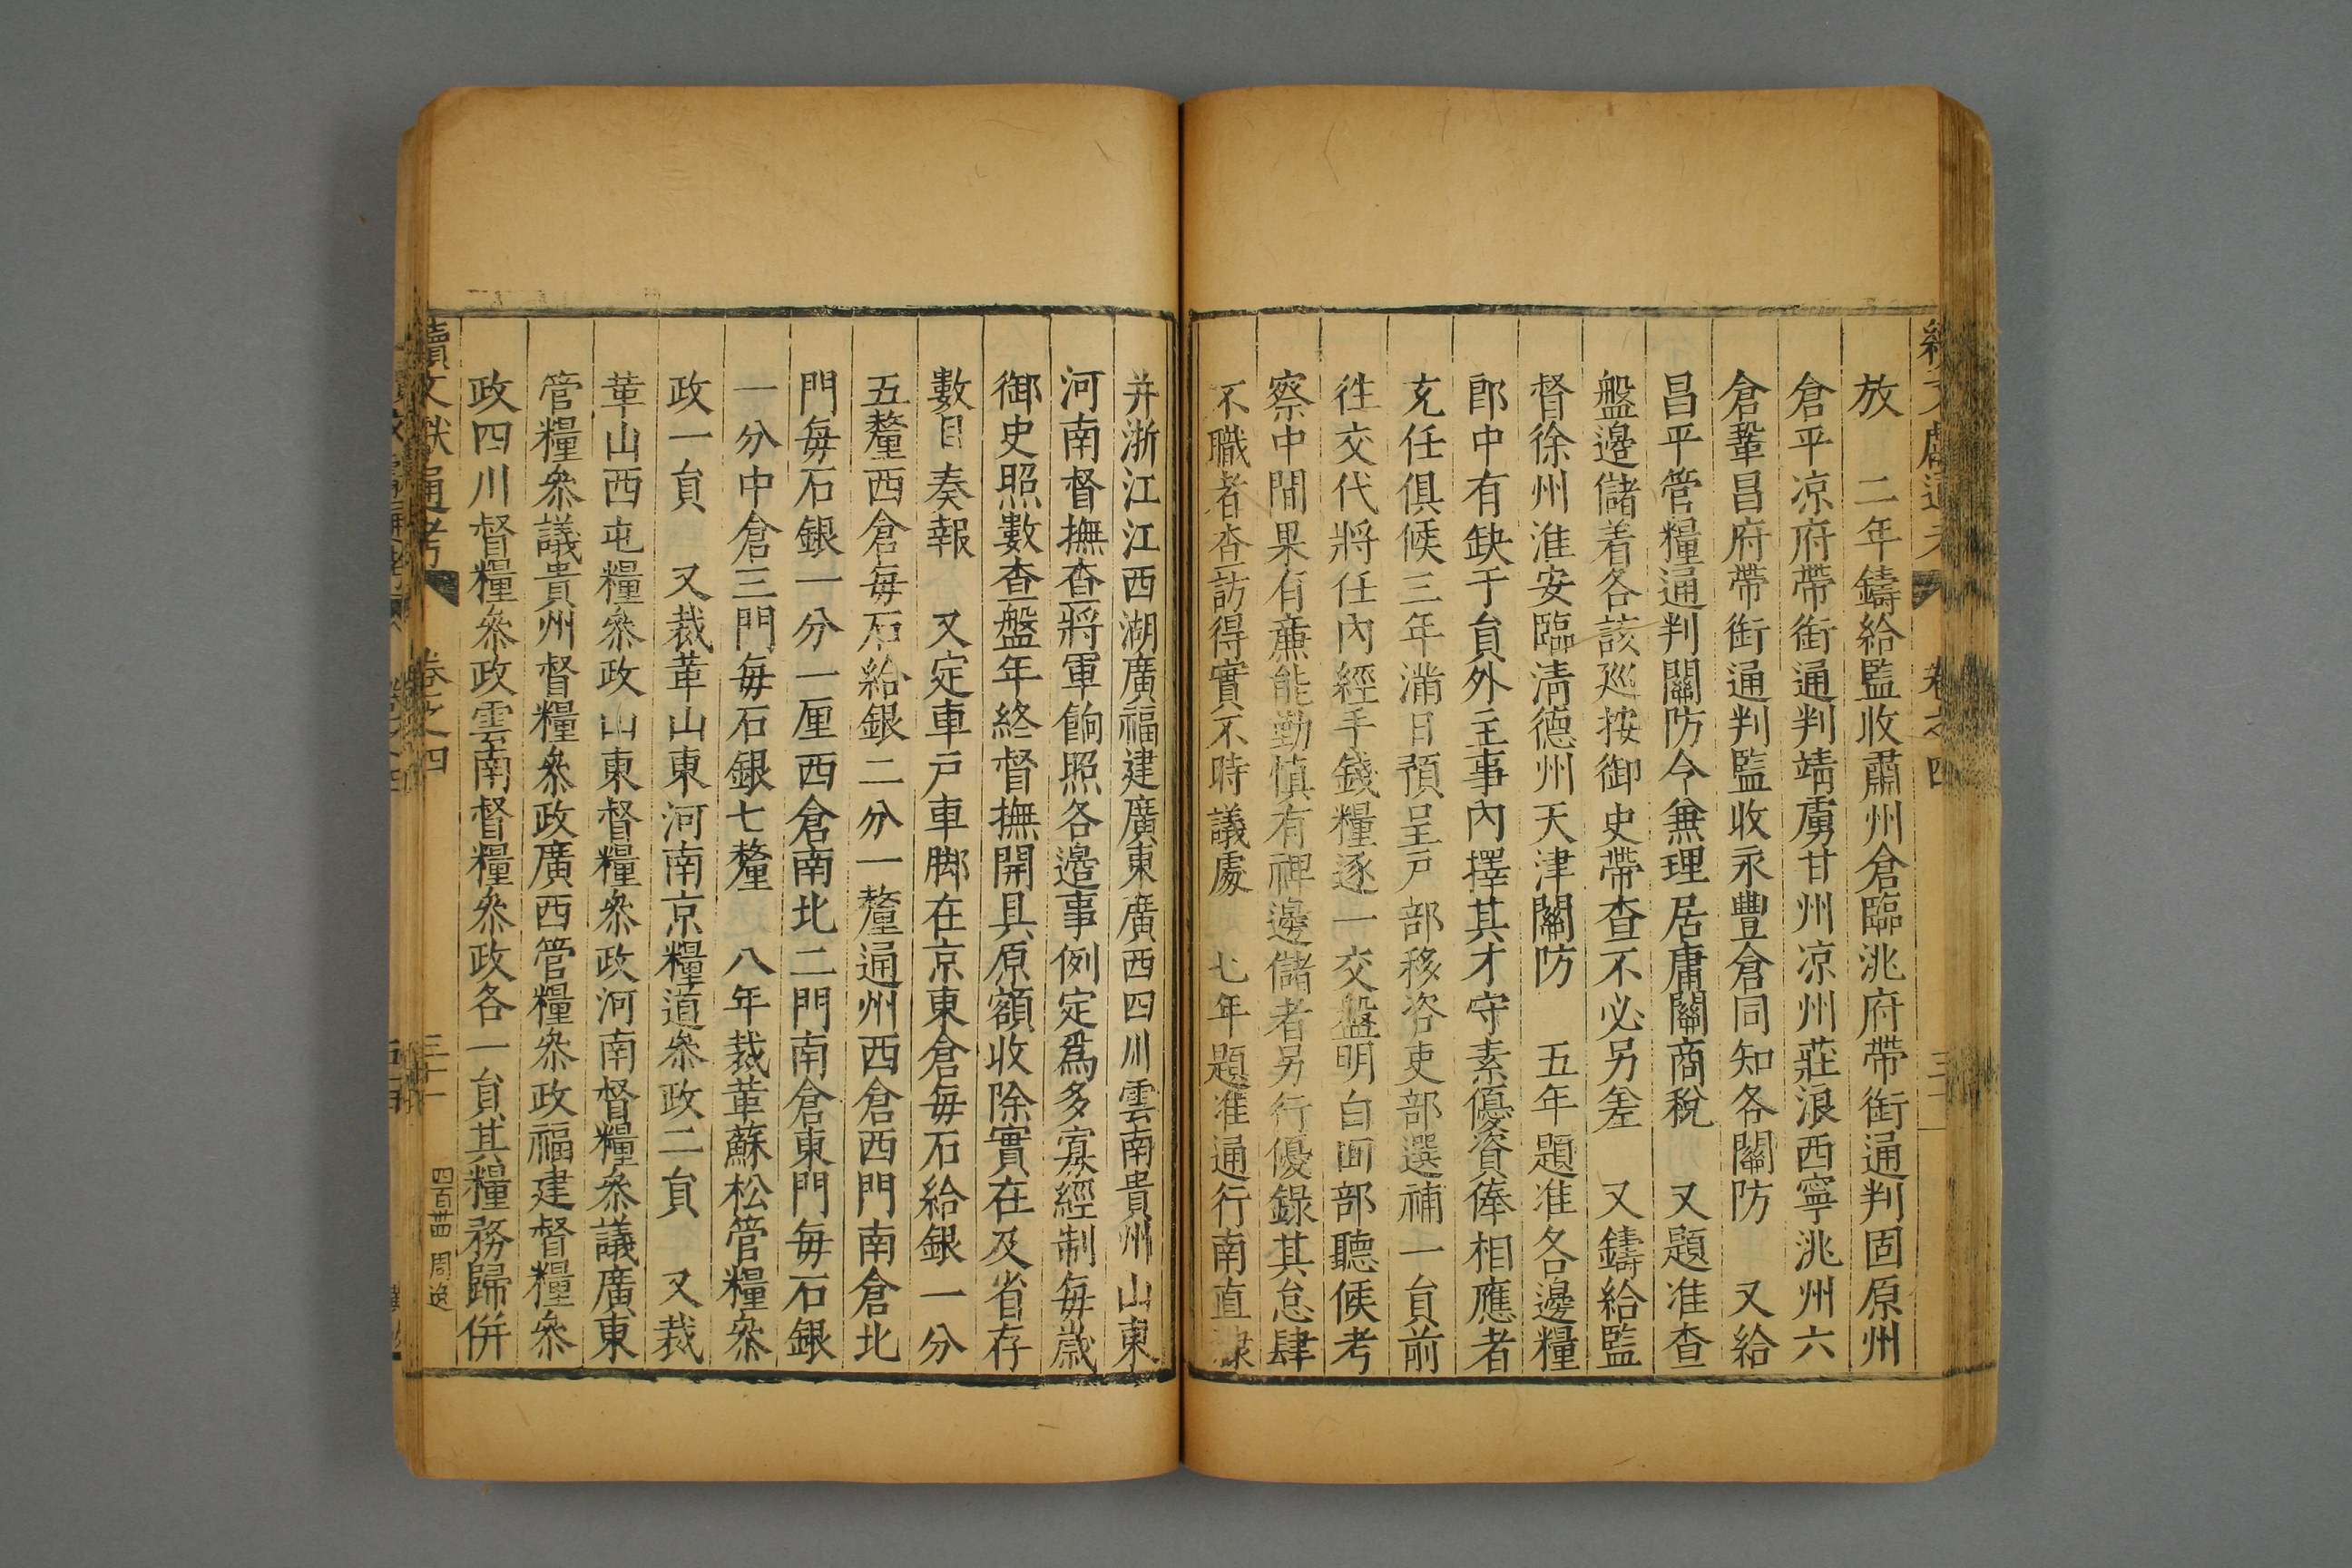 放　二年鑄給監收肅州倉臨洮府帶銜通判固原州
倉平凉府帶銜通判靖虜甘州凉州莊浪西寧洮州六
倉鞏昌府帶銜通判監收永豐倉同知各關防　又給
昌平管糧通判關防今兼理居庸關商稅　又題准查
盤邊儲着各該巡按御史帶查不必另差　又鑄給監
督徐州淮安臨清德州天津關防　五年題准各邊糧
郎中有缺于貟外主事內擇其才守素優資俸相應者
充任俱候三年滿日預呈戸部移咨吏部選補一貟前
徃交代將任內經手錢糧逐一交盤明白回部聽候考
察中間果有亷能勤慎有裨邊儲者另行優錄其怠肆
不職者查訪得實不時議處　七年題准通行南直隸
并浙江江西湖廣福建廣東廣西四川雲南貴州山東
河南督撫查將軍餉照各邊事例定爲多寡經制毎歲
御史照數查盤年終督撫開具原額收除實在及省存
數目奏報　又定車戸車脚在京東倉毎石給銀一分
五釐西倉毎石給銀二分一釐通州西倉西門南倉北
門毎石銀一分一厘西倉南北二門南倉東門毎石銀
一分中倉三門毎石銀七釐　八年裁革蘇松管糧叅
政一貟　又裁革山東河南京糧道叅政二貟　又裁
革山西屯糧叅政山東督糧叅政河南督糧叅議廣東
管糧叅議貴州督糧叅政廣西管糧叅政福建督糧叅
政四川督糧叅政雲南督糧叅政各一貟其糧務歸併
續文獻通考　卷之四　三十一